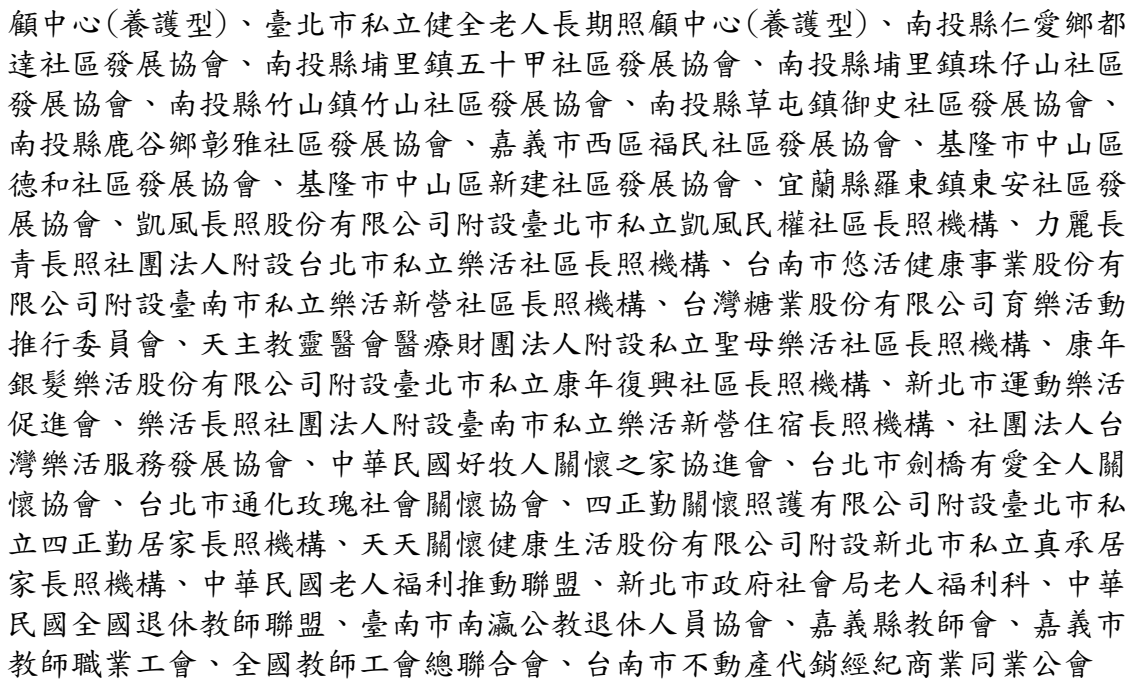 顧中心(養護型)、臺北市私立健全老人長期照顧中心(養護型)、南投縣仁愛鄉都
達社區發展協會、南投縣埔里鎮五十甲社區發展協會、南投縣埔里鎮珠仔山社區
發展協會、南投縣竹山鎮竹山社區發展協會、南投縣草屯鎮御史社區發展協會、
南投縣鹿谷鄉彰雅社區發展協會、嘉義市西區福民社區發展協會、基隆市中山區
德和社區發展協會、基隆市中山區新建社區發展協會、宜蘭縣羅東鎮東安社區發
展協會、凱風長照股份有限公司附設臺北市私立凱風民權社區長照機構、力麗長
青長照社團法人附設台北市私立樂活社區長照機構、台南市悠活健康事業股份有
限公司附設臺南市私立樂活新營社區長照機構、台灣糖業股份有限公司育樂活動
推行委員會、天主教靈醫會醫療財團法人附設私立聖母樂活社區長照機構、康年
銀髮樂活股份有限公司附設臺北市私立康年復興社區長照機構、新北市運動樂活
促進會、樂活長照社團法人附設臺南市私立樂活新營住宿長照機構、社團法人台
灣樂活服務發展協會、中華民國好牧人關懷之家協進會、台北市劍橋有愛全人關
懷協會、台北市通化玫瑰社會關懷協會、四正勤關懷照護有限公司附設臺北市私
立四正勤居家長照機構、天天關懷健康生活股份有限公司附設新北市私立真承居
家長照機構、中華民國老人福利推動聯盟、新北市政府社會局老人福利科、中華
民國全國退休教師聯盟、臺南市南瀛公教退休人員協會、嘉義縣教師會、嘉義市
教師職業工會、全國教師工會總聯合會、台南市不動產代銷經紀商業同業公會